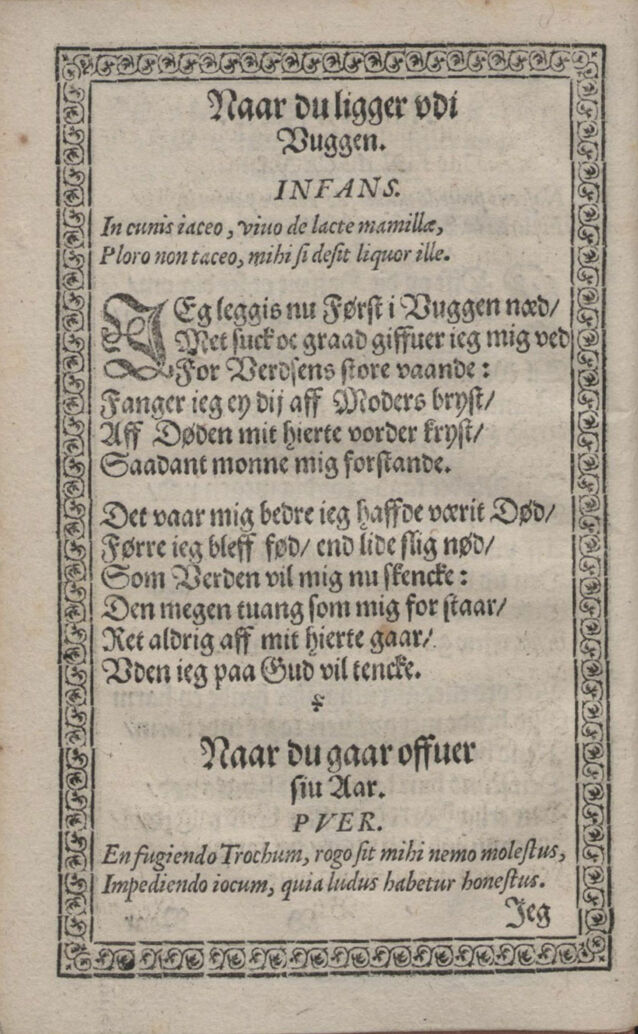 Naar du ligger vdi
Vuggen.
INFANS.
In cunis iaceo, viuo de lacte mamillæ,
Ploro non taceo, mihi si desit liquor ille.
JEg leggis nu Først i Vuggen næd/
Met suck oc graad giffuer ieg mig ved
For Verdsens store vaande:
Fanger ieg ey dij aff Moders bryst/
Aff Døden mit hierte vorder kryst/
Saadant monne mig forstande.
Det vaar mig bedre ieg haffde værit Død/
Førre ieg bleff fød/ end lide slig nød/
Som Verden vil mig nu skencke:
Den megen tuang som mig for staar/
Ret aldrig aff mit hierte gaar/
Vden ieg paa Gud vil tencke.
Naar du gaar offuer
siu Aar.
PVER.
En fugiendo Trochum, rogo sit mihi nemo molestus,
Impediendo iocum, quia ludus habetur honestus.
Jeg